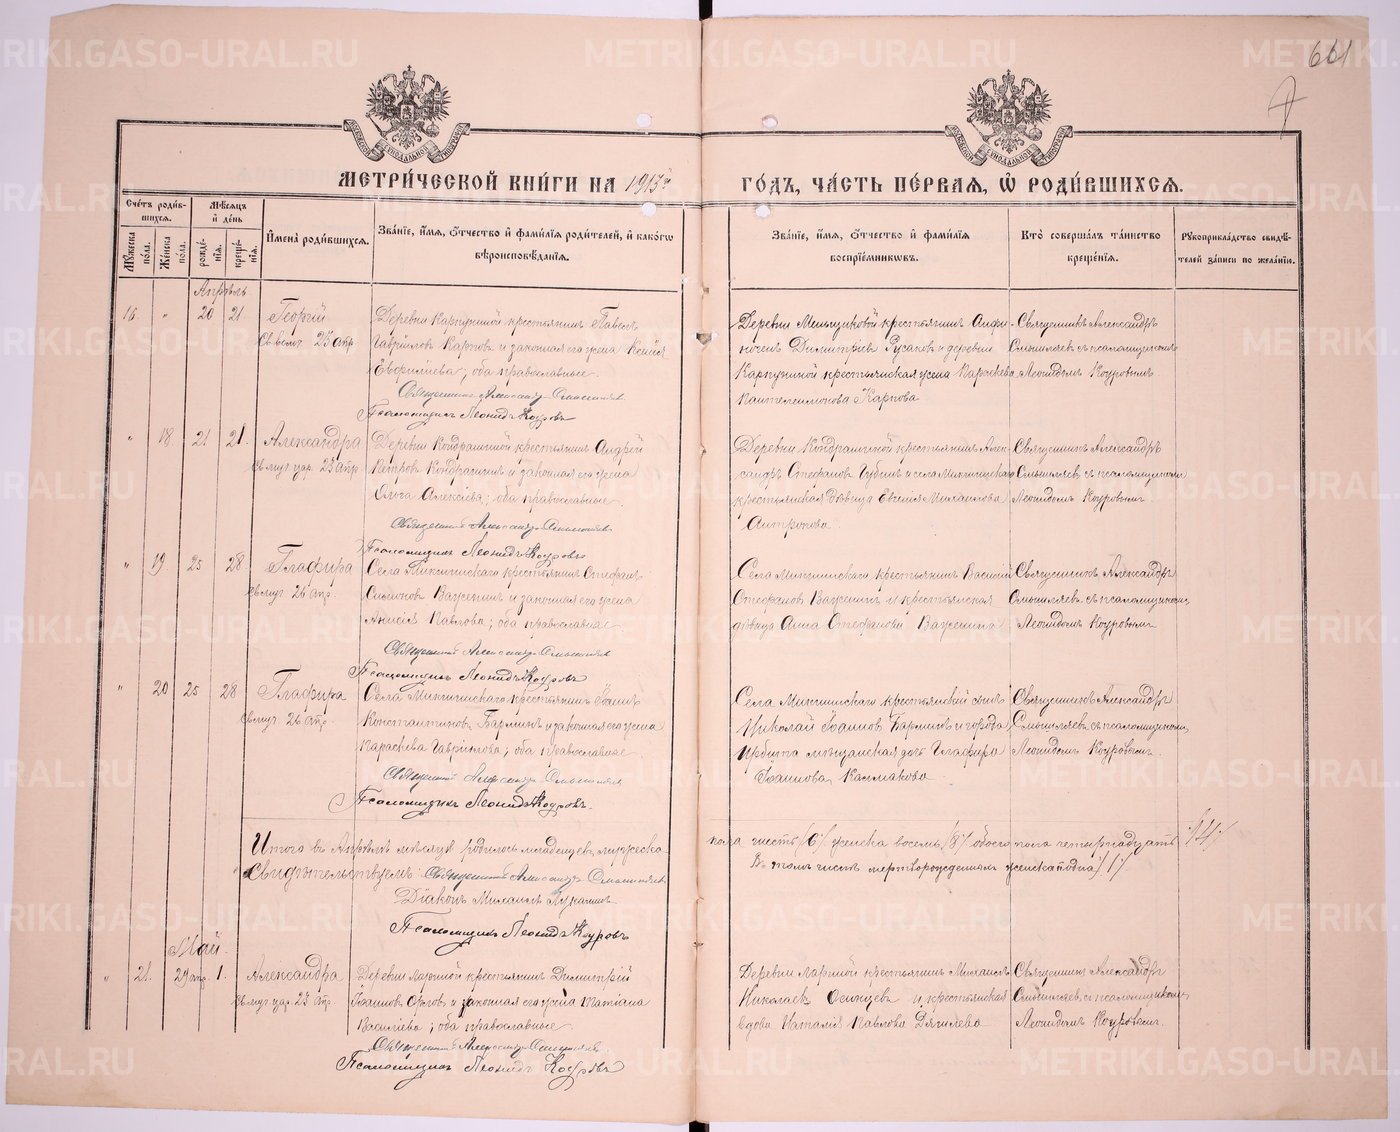 661
МЕТРИ́ЧЕСКОЙ КНИ́ГИ НА 1913й ГО́ДЪ, ЧА́СТЬ ПЕ́РВАЯ, Ѡ҆ РОДИ́ВШИХСЯ.
Сче́тъ роди́в-
шихся.
Мꙋжеска по́ла.
Же́нска по́ла.
Мѣ́сяцъ
и҆ де́нь
рожде́-
нїя.
креще́-
нїя.
И҆мена̀ роди́вшихся.
Зва́нїе, и҆́мя, ѻ҆́тчество и҆ фами́лїя роди́телей, и҆ како́гѡ
вѣроисповѣ́данїя.
Зва́нїе, и҆́мя, ѻ҆́тчество и҆ фами́лїя
воспрїе́мниковъ.
Кто̀ соверша́лъ та́инство
креще́нїя.
Рꙋкоприкла́дство свидѣ́-
телей за́писи по жела́нїю.
Апрѣль
16 „ 20 21
Георгій
Св. вмч. 23 Апр.
Деревни Карпушиной крестьянинъ Павелъ
Гавриловъ Карповъ и законная его жена Ксенія
Евфиміева; оба православные.
Священникъ Александръ Смышляевъ
Псаломщикъ Леонидъ Коуровъ
Деревни Меньщиковой крестьянинъ
Димитріевъ Русаковъ и деревни
Карпушиной крестьянская жена Параскева
Пантелеимонова Карпова
Священникъ Александръ
Смышляевъ съ псаломщикомъ
Леонидомъ Коуровымъ
„ 18 21 21.
Александра
св. муч. цар. 23 Апр.
Деревни Кондрашиной крестьянинъ Андрей
Петровъ Кондрашинъ и законная его жена
Ольга Алексіева; оба православные.
Священникъ Александръ Смышляевъ
Псаломщикъ Леонидъ Коуровъ
Деревни Кондрашиной крестьянинъ Алек-
сандръ Стефановъ Губинъ и села
крестьянская дѣвица Евгенія Михаилова
Антропова
Священникъ Александръ
Смышляевъ съ псаломщикомъ
Леонидомъ Коуровымъ
„ 19 25 28
Глафира
св. муч. 26 Апр.
Села крестьянинъ Стефанъ
Симоновъ Важенинъ и законная его жена
Анисія Павлова; оба православные
Священникъ Александръ Смышляевъ
Псаломщикъ Леонидъ Коуровъ
Села крестьянинъ Василій
Стефановъ Важенинъ и крестьянская
дѣвица Анна Стефанова Важенина
Священникъ Александръ
Смышляевъ съ псаломщикомъ
Леонидомъ Коуровымъ
„ 20 25 28
Глафира
св. муч. 26 Апр.
Села крестьянинъ Іоаннъ
Константиновъ и законная его жена
Параскева Гаврилова; оба православные
Священникъ Александръ Смышляевъ
Псаломщикъ Леонидъ Коуровъ.
Села крестьянскій сынъ
Николай Іоанновъ и города
Ирбита мѣщанская дочь Глафира
Іоаннова Калмакова
Священникъ Александръ
Смышляевъ съ псаломщикомъ
Леонидомъ Коуровымъ.
Итого въ Апрѣлѣ мѣсяцѣ родилось младенцевъ мужеска пола шесть /6/, женска восемь /8/ обоего пола четырнадцать /14/
Въ томъ числѣ мертворожденныхъ женска пола /1/
Свидѣтельствуемъ: Священникъ Александръ Смышляевъ
Діаконъ Михаилъ Лукинъ
Псаломщикъ Леонидъ Коуровъ
Май.
„ 21. 29 апр. 1.
Александра
св. муч. цар. 23 Апр.
Деревни крестьянинъ Димитрій
Іоанновъ Орловъ и законная его жена Татіана
Василіева; оба православные
Священникъ Александръ Смышляевъ
Псаломщикъ Леонидъ Коуровъ
Деревни крестьянинъ Михаилъ
Николаевъ Осинцевъ и крестьянская
вдова Наталія Павлова
Священникъ Александръ
Смышляевъ съ псаломщикомъ
Леонидомъ Коуровымъ.
METRIKI.GASO-URAL.RU